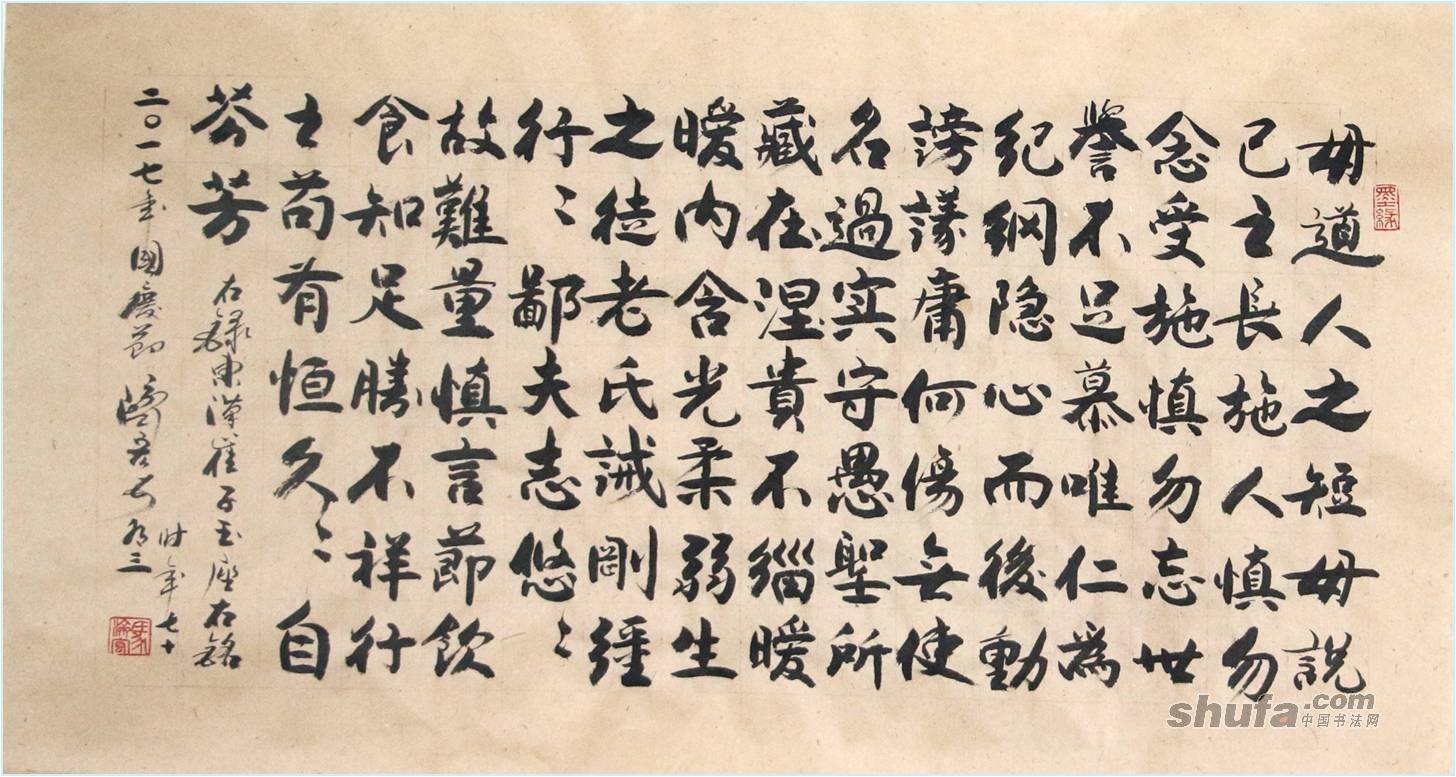 墨缘
毋道人之短毋說
己之長施人慎勿
念受施慎勿忘世
譽不足慕唯仁為
紀綱隐心而後動
謗議庸何傷無使
名過实守愚聖所
藏在涅貴不緇暧
暧内含光柔弱生
之徒老氏誡剛彊
行〻鄙夫志悠〻
故難量慎言節飲
食知足勝不祥行
之苟有恒久〻自
芬芳 右録東漢崔子玉座右銘
二〇一七年國慶節
时年七十
有三
shufa.com
中国书法网